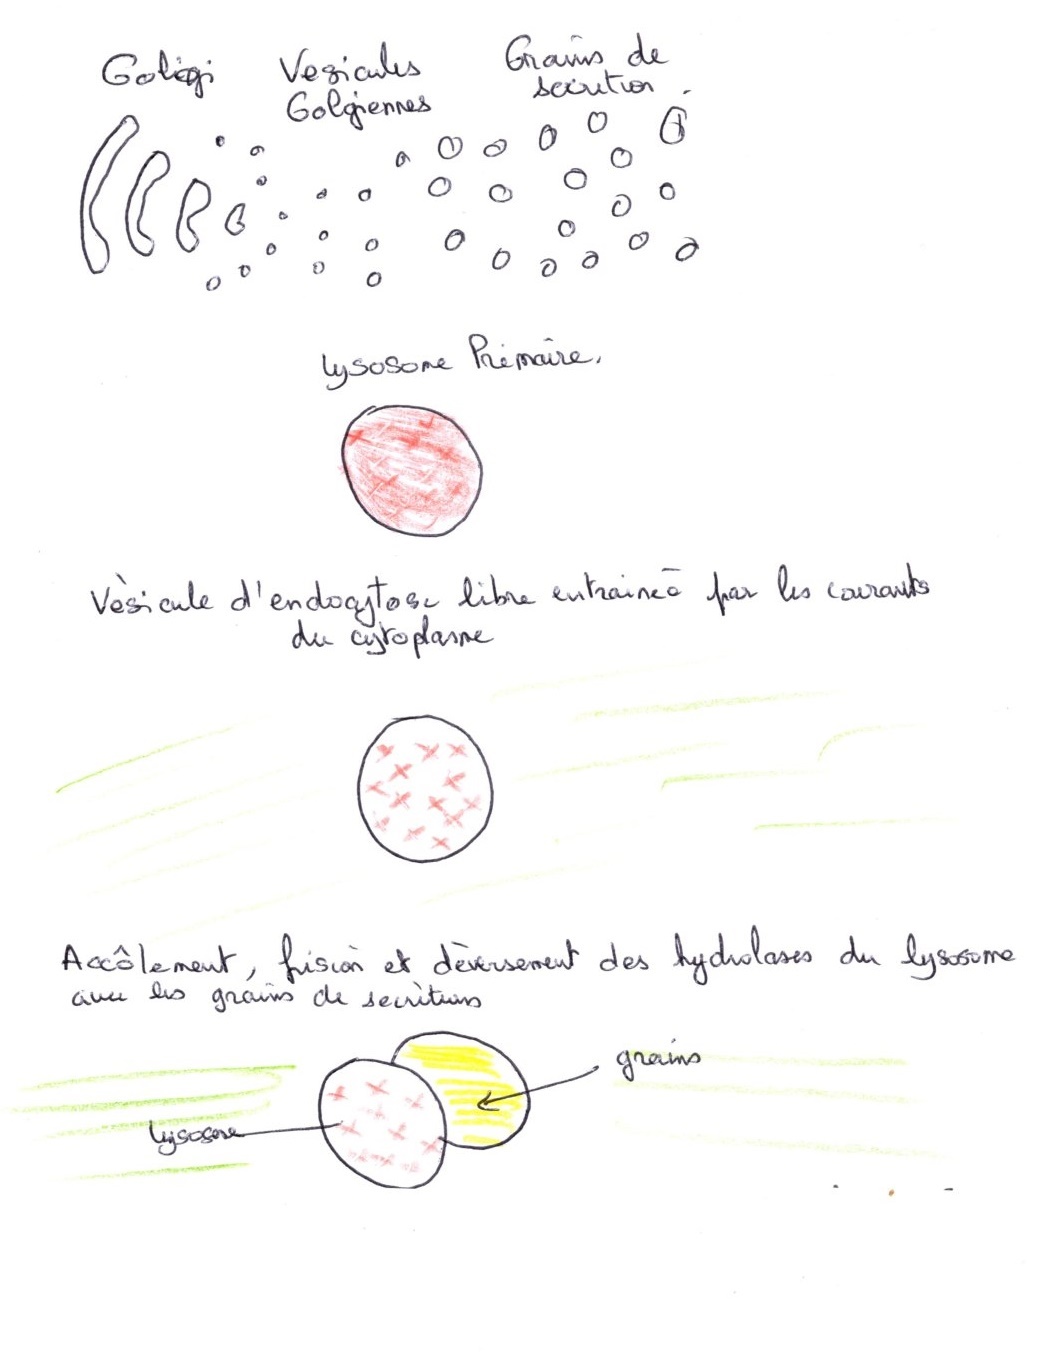 Golgi Vesicules Grains de
Golgiennes secrétion.
Lysosome Primaire.
Vésicule d'endocytose libre entrainée par les courants
du cytoplasme
Accôlement, fusion et déversement des hydrolases du lysosome
avec les grains de secrétions
grains
lysosome